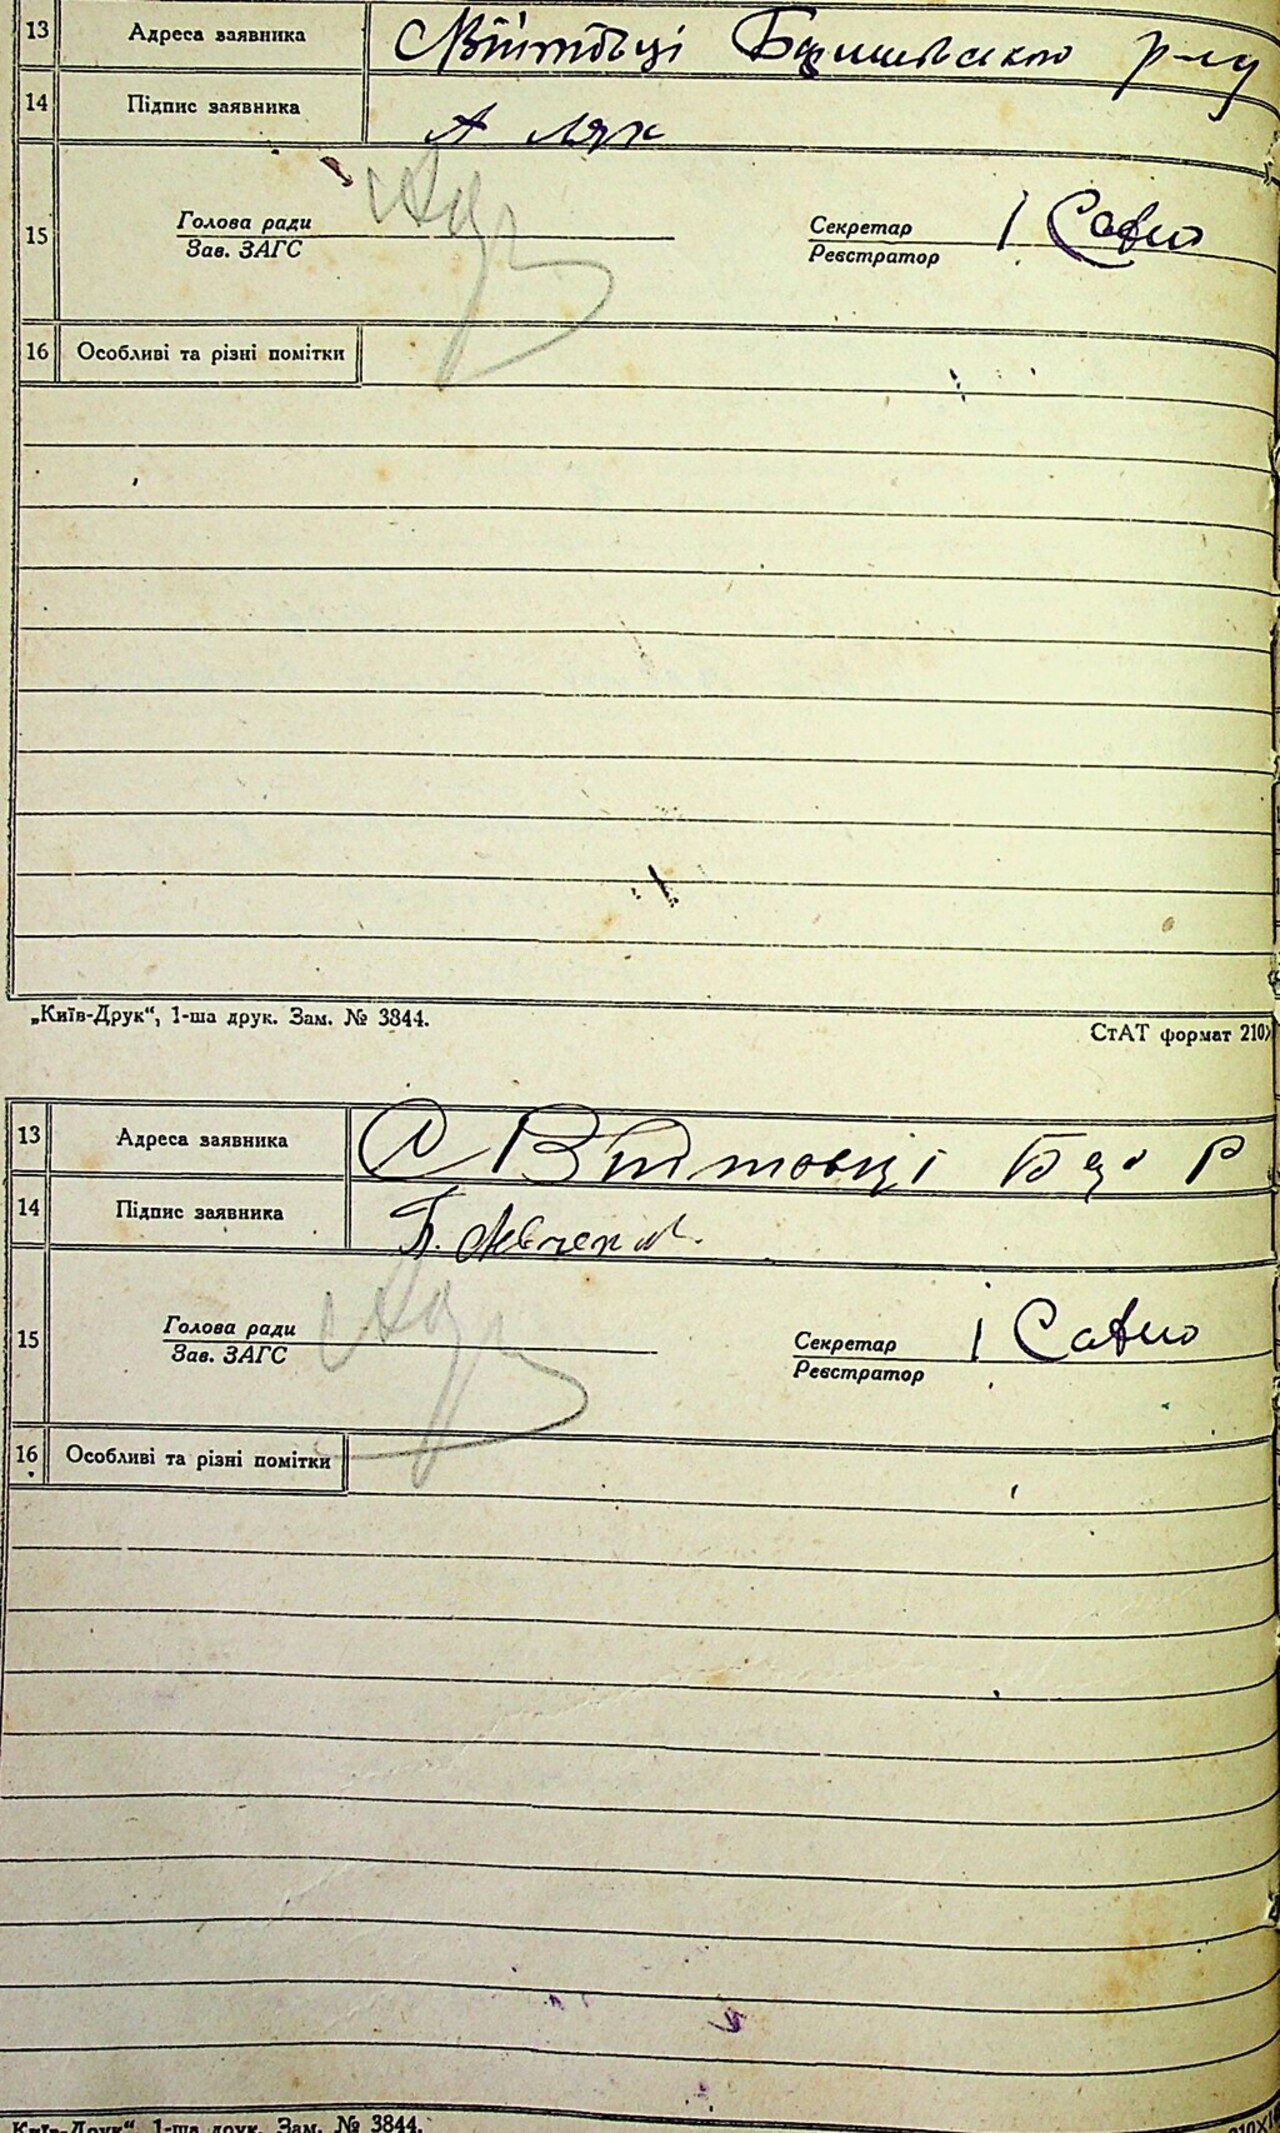 13 Адреса заявника с Війтовці Баришівського р-ну
14 Підпис заявника А Ляк
15 Голова ради Зав. ЗАГС Секретар Реєстратор І Савч
16 Особливі та різні помітки
„Київ-Друк“, 1-ша друк. Зам. № 3844. СтАТ формат 210
13 Адреса заявника С Війтовці Бар Р
14 Підпис заявника
15 Голова ради Зав. ЗАГС Секретар Реєстратор І Савч
16 Особливі та різні помітки
Київ-Друк“, 1-ша друк. Зам. № 3844.